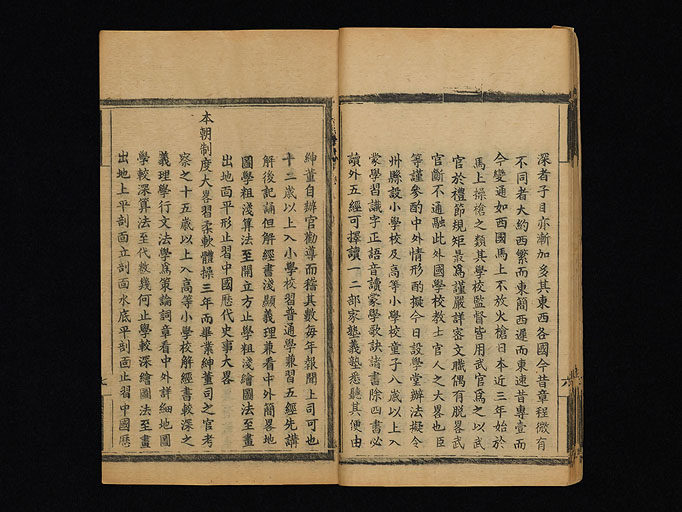 深者子目亦漸加多其東西各國今昔章程微有
不同者大約西繁而東簡西遲而東速昔專壹而
今變通如西國馬上不放火槍日本近三年始於
馬上操槍之類其學校監督皆用武官爲之以武
官於禮節規矩最爲謹嚴詳審文職偶有脱畧武
官斷不通融此外國學校教士官人之大畧也臣
等謹參酌中外情形酌擬今日設學堂辦法擬令
州縣設小學校及高等小學校童子八歲以上入
蒙學習識字正語音讀蒙學歌訣諸書除四書必
讀外五經可擇讀一二部家塾義塾悉聽其便由
紳董自辦官勸導而稽其數每年報聞上司可也
十二歲以上入小學校習普通學兼習五經先講
解後記誦但解經書淺顯義理兼看中外簡畧地
圖學粗淺算法至開立方止學粗淺繪圖法至畫
出地面平形止習中國歷代史事大畧
本朝制度大畧習柔軟體操三年而畢業紳董司之官考
察之十五歲以上入高等小學校解經書較深之
義理學行文法學爲策論詞章看中外詳細地圖
學較深算法至代數幾何止學較深繪圖法至畫
出地上平剖面立剖面水底平剖面止習中國歷